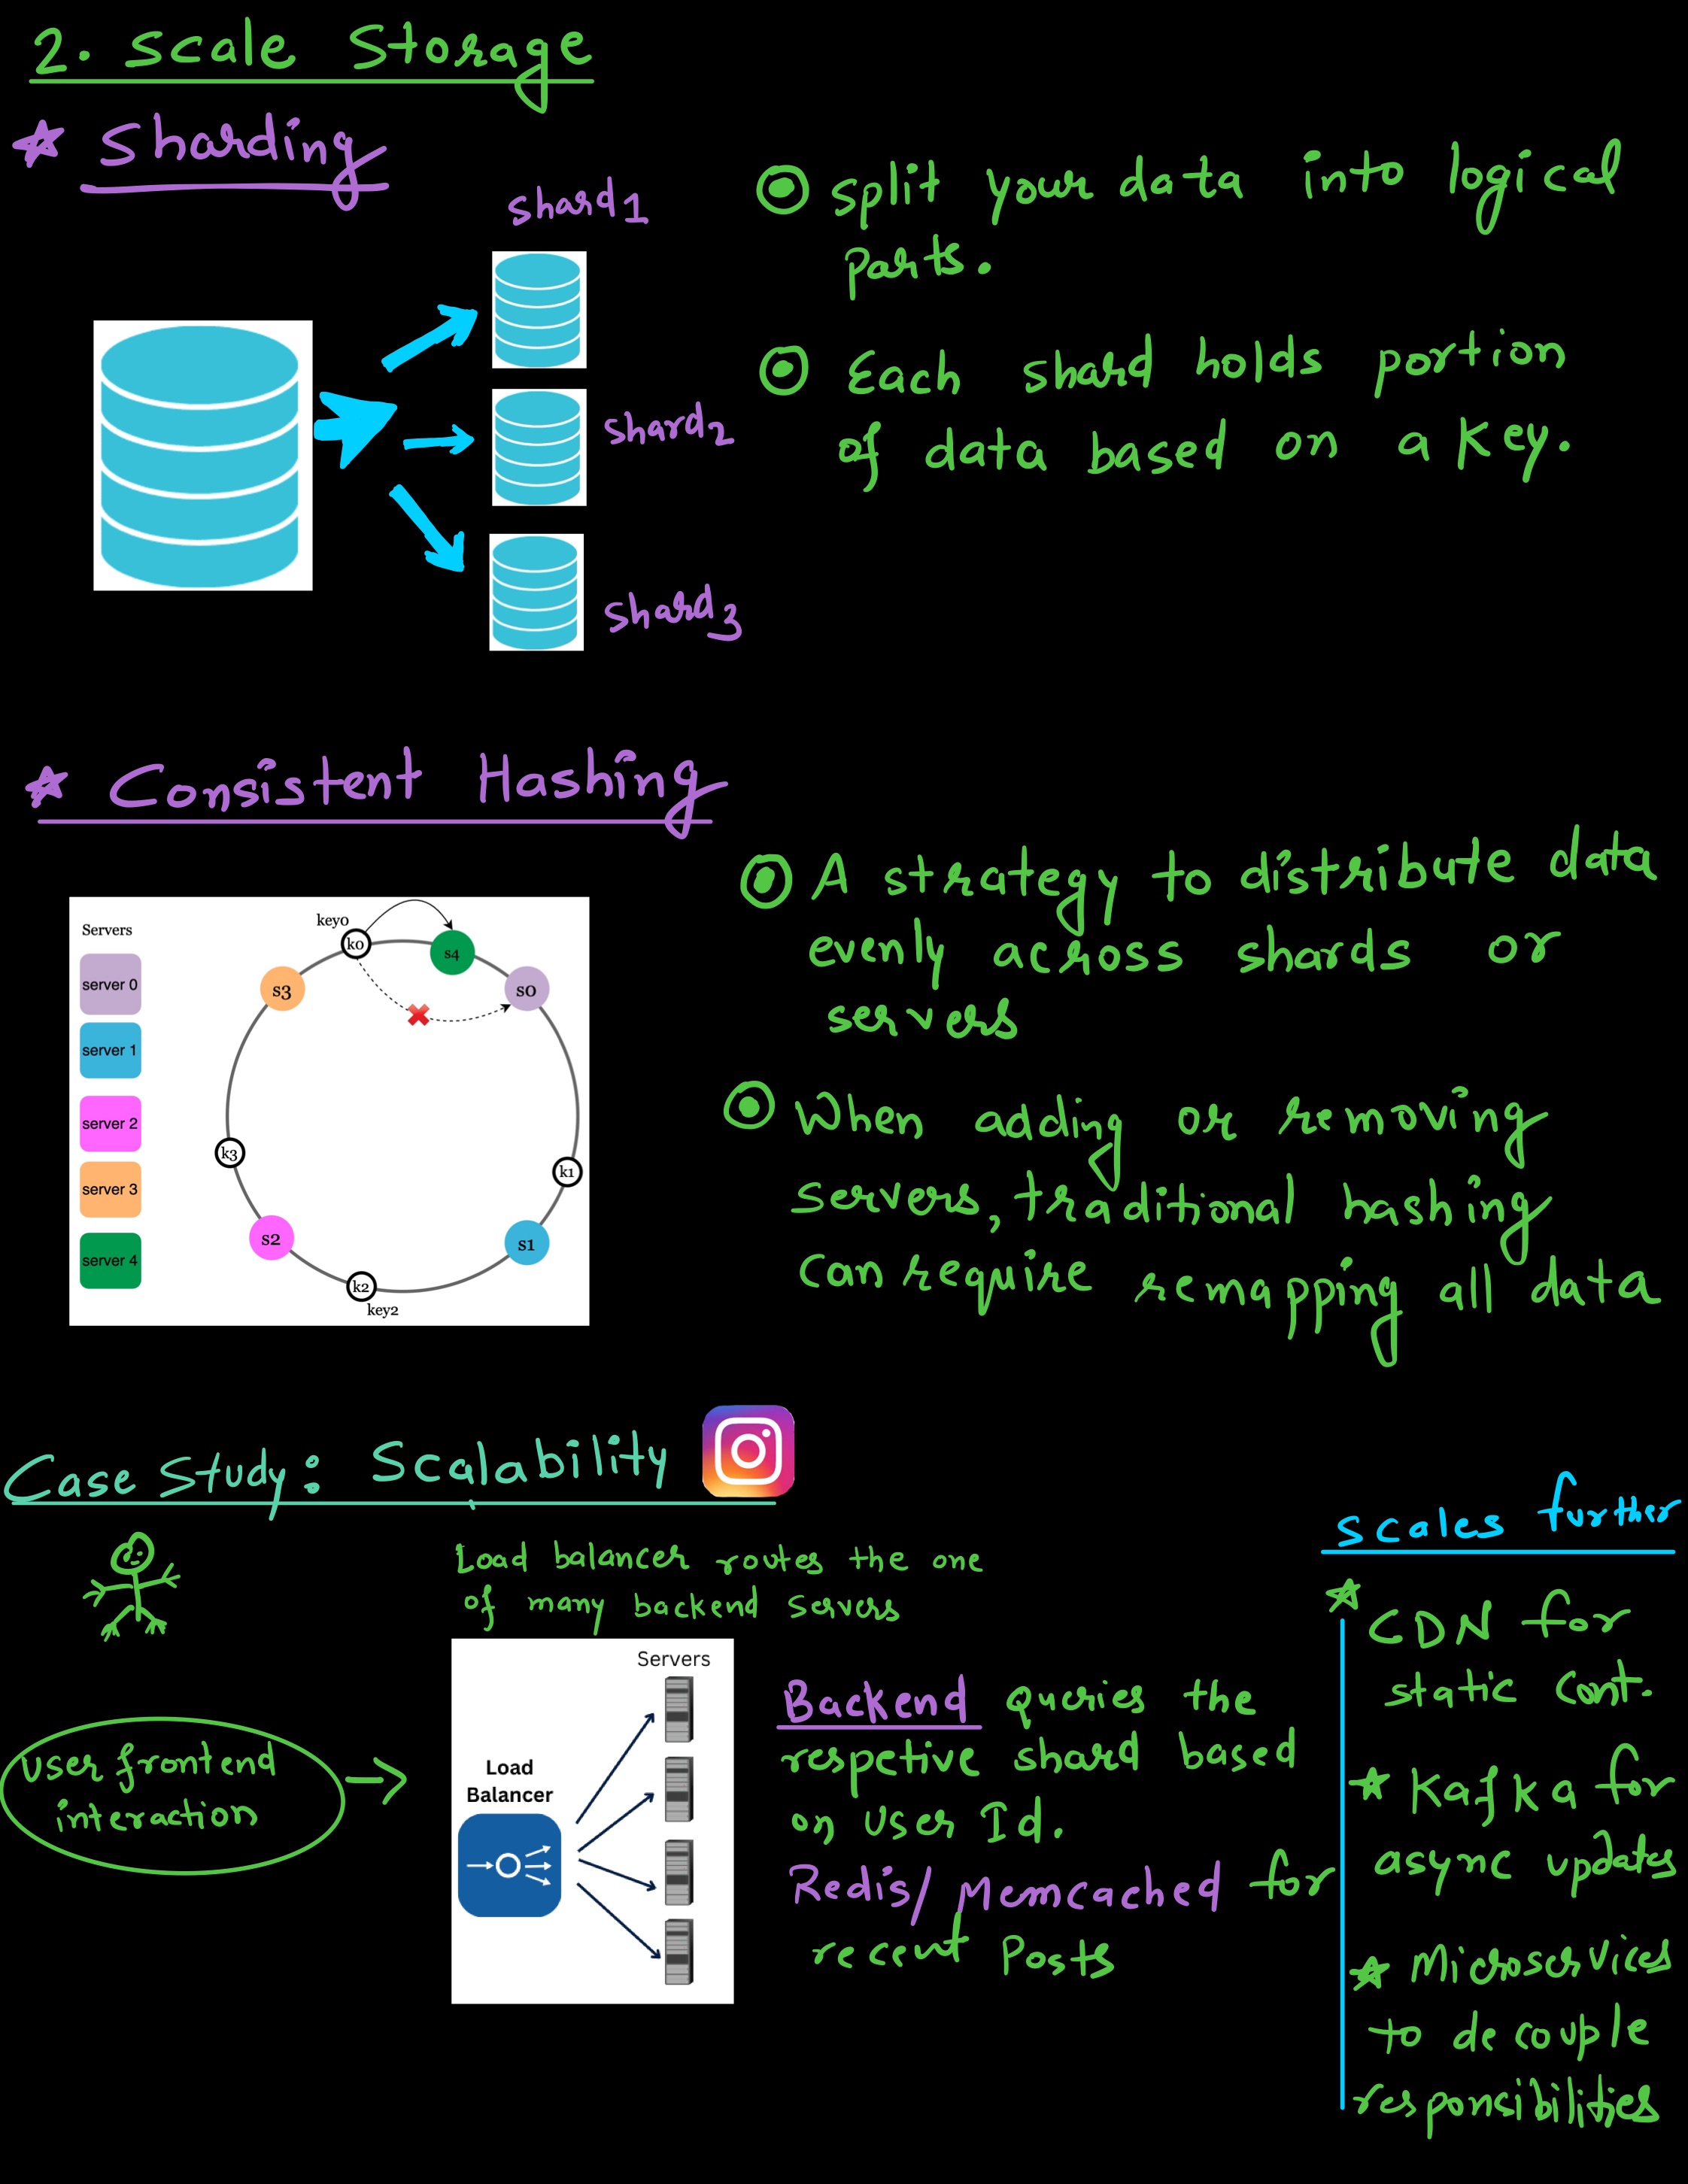 2. Scale Storage
Sharding
shard1
shard2
shard3
split your data into logical
parts.
Each shard holds portion
of data based on a key.
Consistent Hashing
Servers
server 0
server 1
server 2
server 3
server 4
key0
k0
s4
s0
s3
k3
k1
s2
s1
k2
key2
A strategy to distribute data
evenly across shards or
servers
When adding or removing
servers, traditional hashing
can require remapping all data
Case Study: Scalability
User frontend
interaction
Load balancer routes the one
of many backend servers
Servers
Load
Balancer
Backend queries the
respetive shard based
on user Id.
Redis/Memcached for
recent Posts
scales further
CDN for
static cont.
Kafka for
async updates
Microservices
to decouple
responsibilities